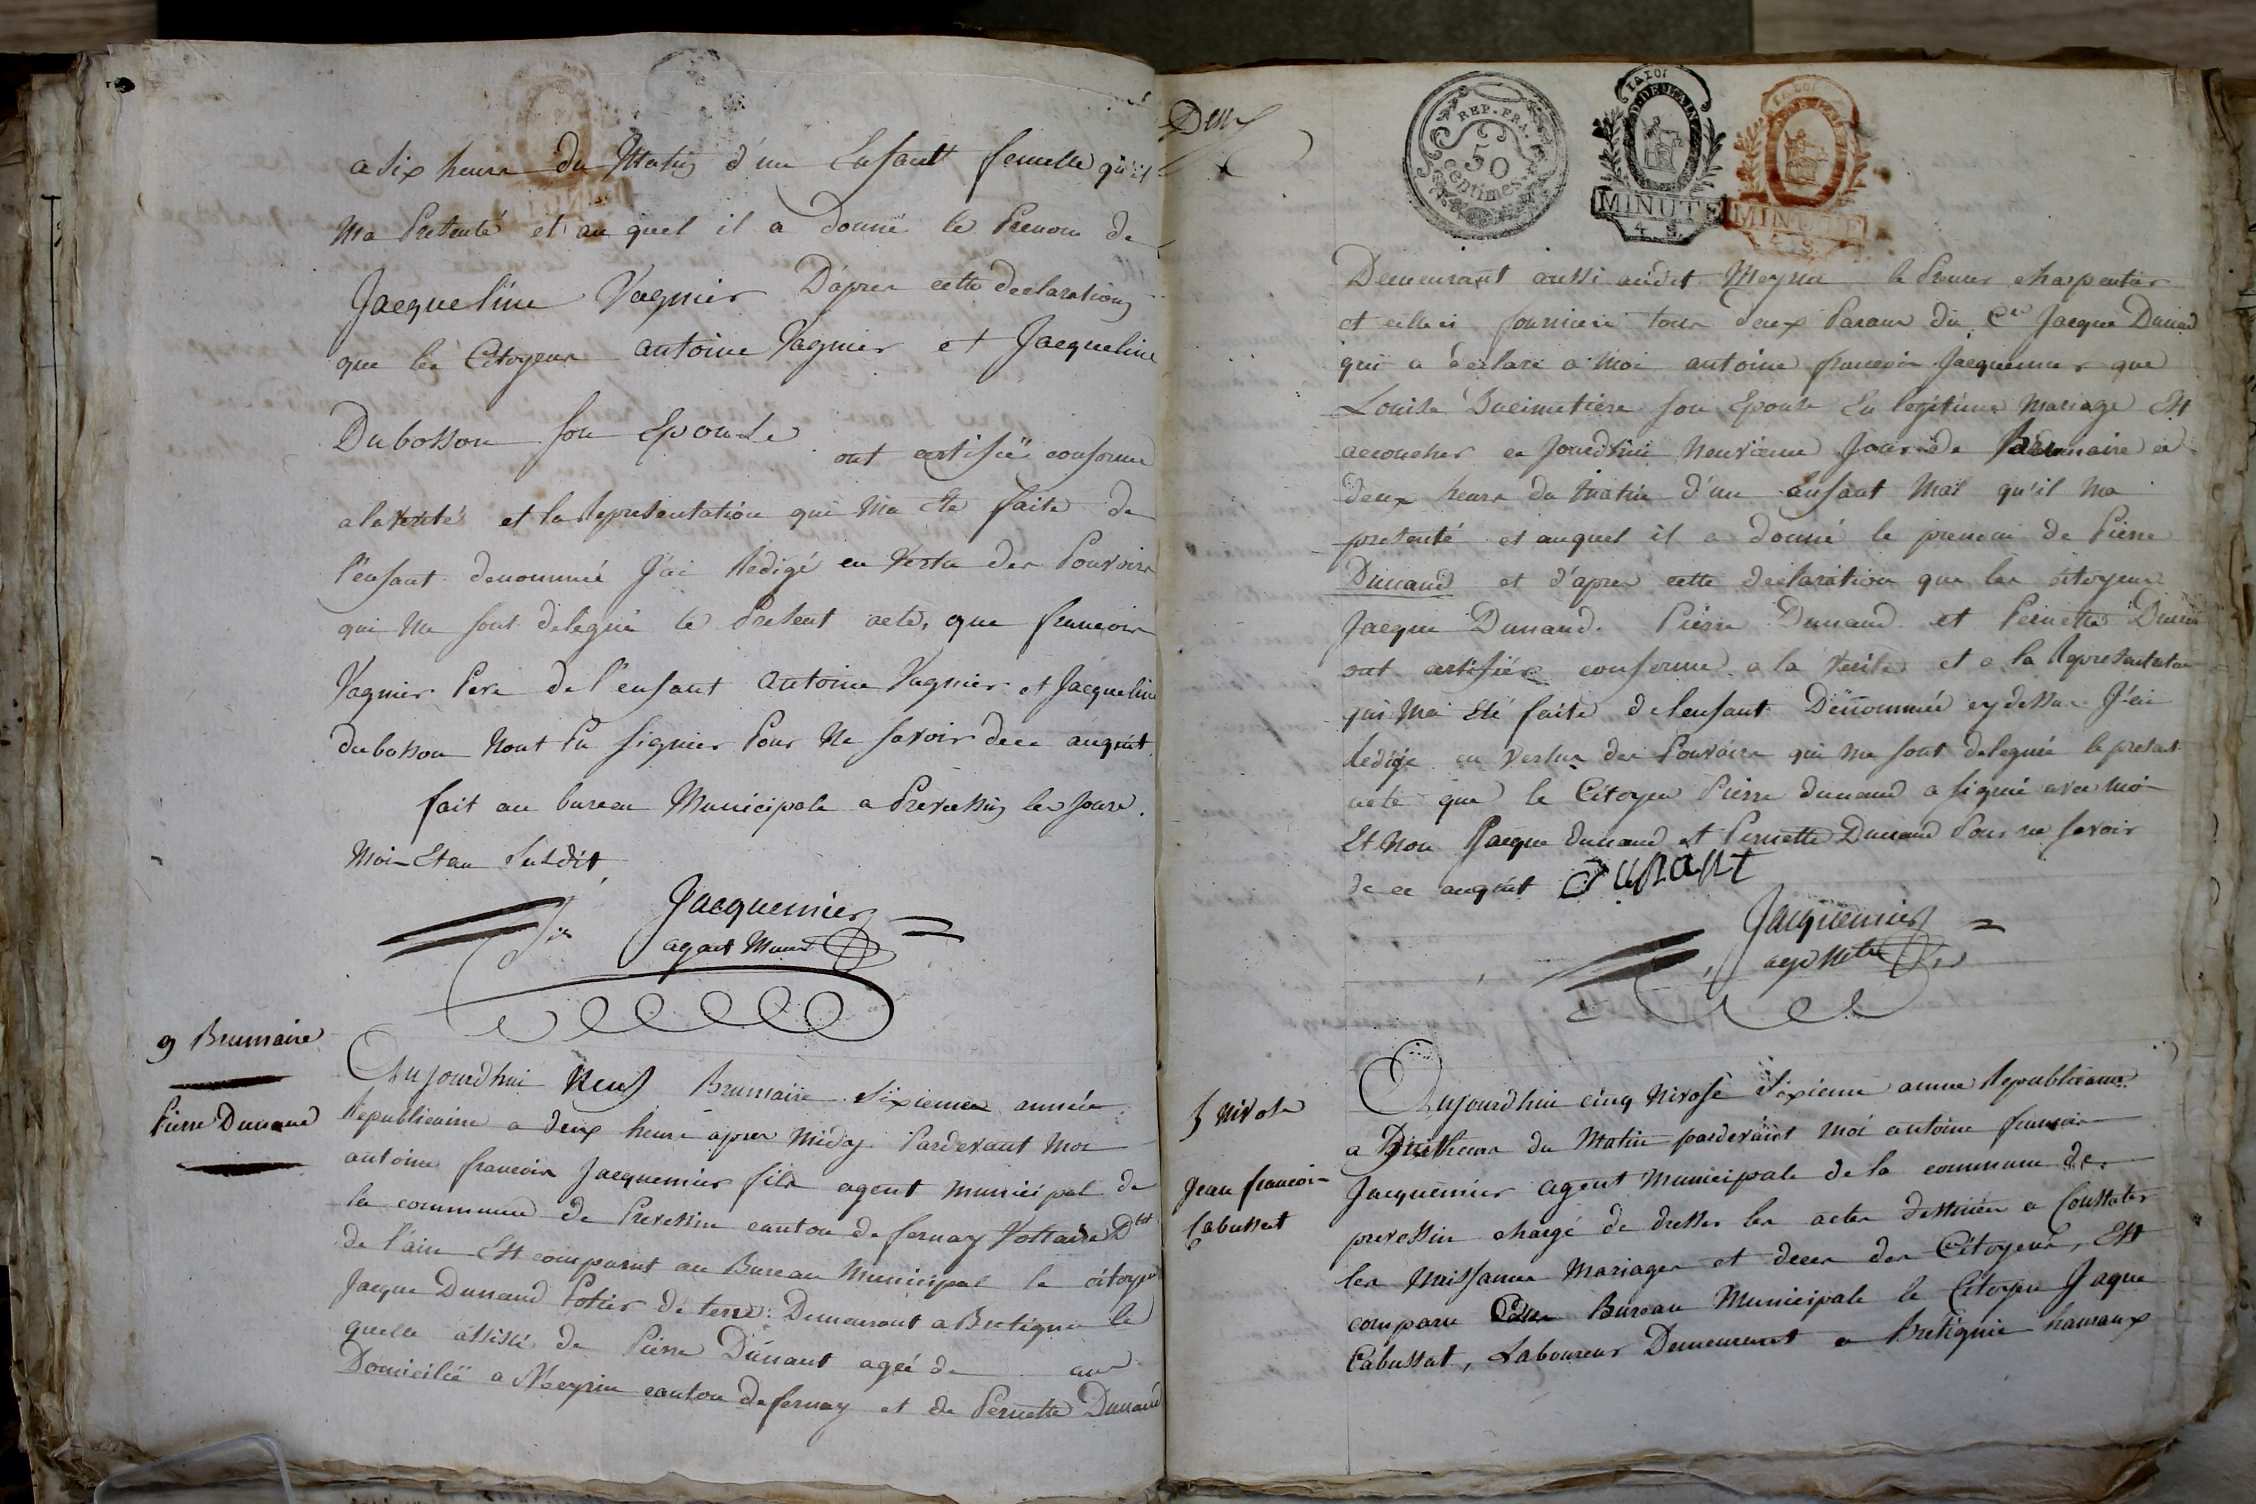 a six heure du Matin d'un Enfant femelle qu'il
Ma Presenté et au quel il a donné le Prenom de
Jacqueline Vagnier D'apres cette declaration
que les Citoyens antoine Vagnier et Jacqueline
Dubosson son Epouse ont certifié conforme
a la Verité et la Representation qui Ma Ete faite de
l'enfant denommé J'ai Redigé en Vertu des Pouvoirs
qui Me sont delegué le Present acte, que francois
Vagnier Pere de l'enfant antoine Vagnier et Jacqueline
dubosson Nont Pu signier Pour Ne savoir dece anquit
fait au bureau Municipale a Prevessin les Jours
Mois Et an Susdit
Jacquemier
agent Munal
9 Brumaire
Pierre Dunand
Aujourdhui Neuf Brumaire Sixieme année
Republicaine a deux heure apres Midy Pardevant Moi
antoine francois Jacquemier fils agent Municipal de
la commune de Prevessin canton de fernay Voltaire Dtt
de l'ain Est comparut au Bureau Municipal le citoyen
Jacque Dunand Potier de terre Demeurant a Bretigni le
quelle assisté de Pierre Dunant agé de ans
Domicilié a Meyrin canton de fernay et de Pernette Dunand
Deux
REP. FRA.
50
Centimes
LA LOI
MINUTE
4. S.
LA LOI
MINUTE
4. S.
Demeurant aussi audit Meyrin le Premier charpentier
et celleci tous deux Parans du Cen Jacque Dunand
qui a declaré a Moi antoine francois Jacquemier que
Louise Ducimetiere son Epouse En legitime Mariage Est
accoucher ce Jourdhui Neuvieme Jour de Brumaire a
deux heure du Matin d'un enfant Mal qu'il Ma
presenté et auquel il a donné le prenom de Pierre
Dunand et d'apres cette declaration que les citoyens
Jacque Dunand. Pierre Dunand et Pernette Dunand
ont certifiée conforme a la Verité et a la Representation
qui Ma Eté faite de lenfant Denommée cy dessus J'ai
Redigé en Vertu des Pouvoirs qui me sont delegué le present
acte que le Citoyen Pierre dunand a signié avec moi
Et non Jacque dunand et Pernette Dunand Pour ne savoir
de ce anquit DUNANT
Jacquemier
5 Nivose
Jean francois
Cabussat
Aujourdhui cinq Nivose Sixieme annee Republicaine
a heures du Matin pardevant Moi antoine francois
Jacquemier agent Municipale de la commune de
prevessin chargé de dresser les actes destinées a Constater
les Naissances Mariages et deces des Citoyens, Est
comparu Bureau Municipale le Citoyen Jaque
Cabussat, Laboureur Demeurant a Bretignie hamaux